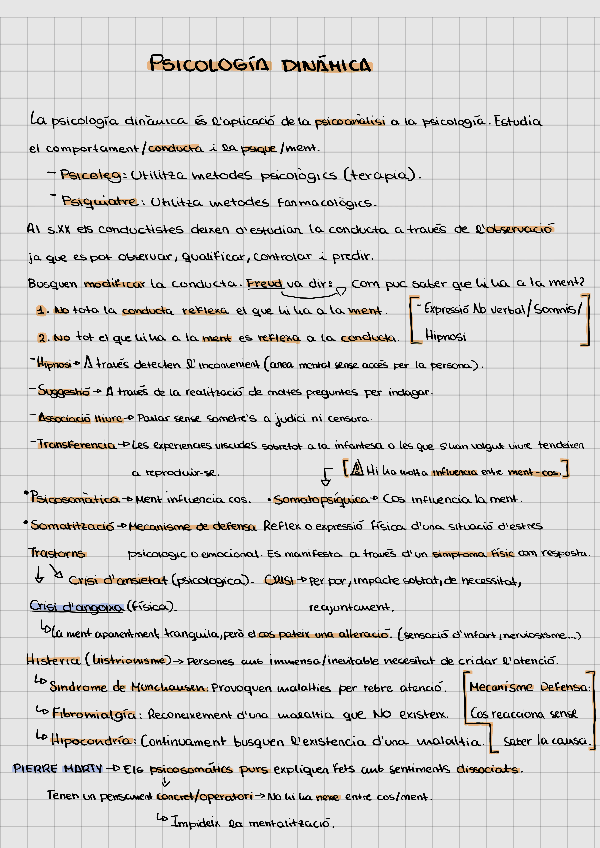 PSICOLOGÍA DINÀMICA
La psicología dinàmica és l'aplicació de la psicoanàlisi a la psicología. Estudia
el comportament/conducta i la psique/ment.
- Psicoleg: Utilitza metodes psicològics (terapia).
- Psiquiatre: Utilitza metodes farmacològics.
Al s.XX els conductistes deixen d'estudiar la conducta a través de l'observació
ja que es pot observar, qualificar, controlar i predir.
Busquen modificar la conducta. Freud va dir: Com puc saber que hi ha a la ment?
1. No tota la conducta reflexa el que hi ha a la ment. - Expressió No verbal/Somnis/
2. No tot el que hi ha a la ment es reflexa a la conducta. Hipnosi
- Hipnosi → A través detecten l'inconscient (area mental sense accés per la persona).
- Suggestió → A través de la realització de moltes preguntes per indagar.
- Associació lliure → Parlar sense sometre's a judici ni censura.
- Transferencia → Les experiencies viscudes sobretot a la infantesa o les que s'han volgut viure tendeixen
a reproduir-se. ⚠ Hi ha molta influencia entre ment-cos.
• Psicosomàtica → Ment influencia cos. • Somatopsíquica → Cos influencia la ment.
• Somatització → Mecanisme de defensa Reflex o expressió física d'una situació d'estres
Trastorns psicologic o emocional. Es manifesta a través d'un simptoma físic com resposta.
↓ ↘ Crisi d'ansietat (psicologica). CRISI → Per por, impacte sobtat, de necessitat,
Crisi d'angoixa (física). reajuntament.
↳ La ment aparentment tranquila, però el cos pateix una alteració. (sensació d'infart, nerviosisme...)
Histeria (histrionisme) → Persones amb immensa/inevitable necesitat de cridar l'atenció.
↳ Síndrome de Münchausen: Provoquen malalties per rebre atenció. Mecanisme Defensa:
↳ Fibromialgía: Reconeixement d'una malaltia que NO existeix. Cos reacciona sense
↳ Hipocondría: Continuament busquen l'existencia d'una malaltia. saber la causa.
PIERRE MARTY → Els psicosomàtics purs expliquen fets amb sentiments dissociats.
Tenen un pensament concret/operatori → No hi ha nexe entre cos/ment.
↳ Impideix la mentalització.